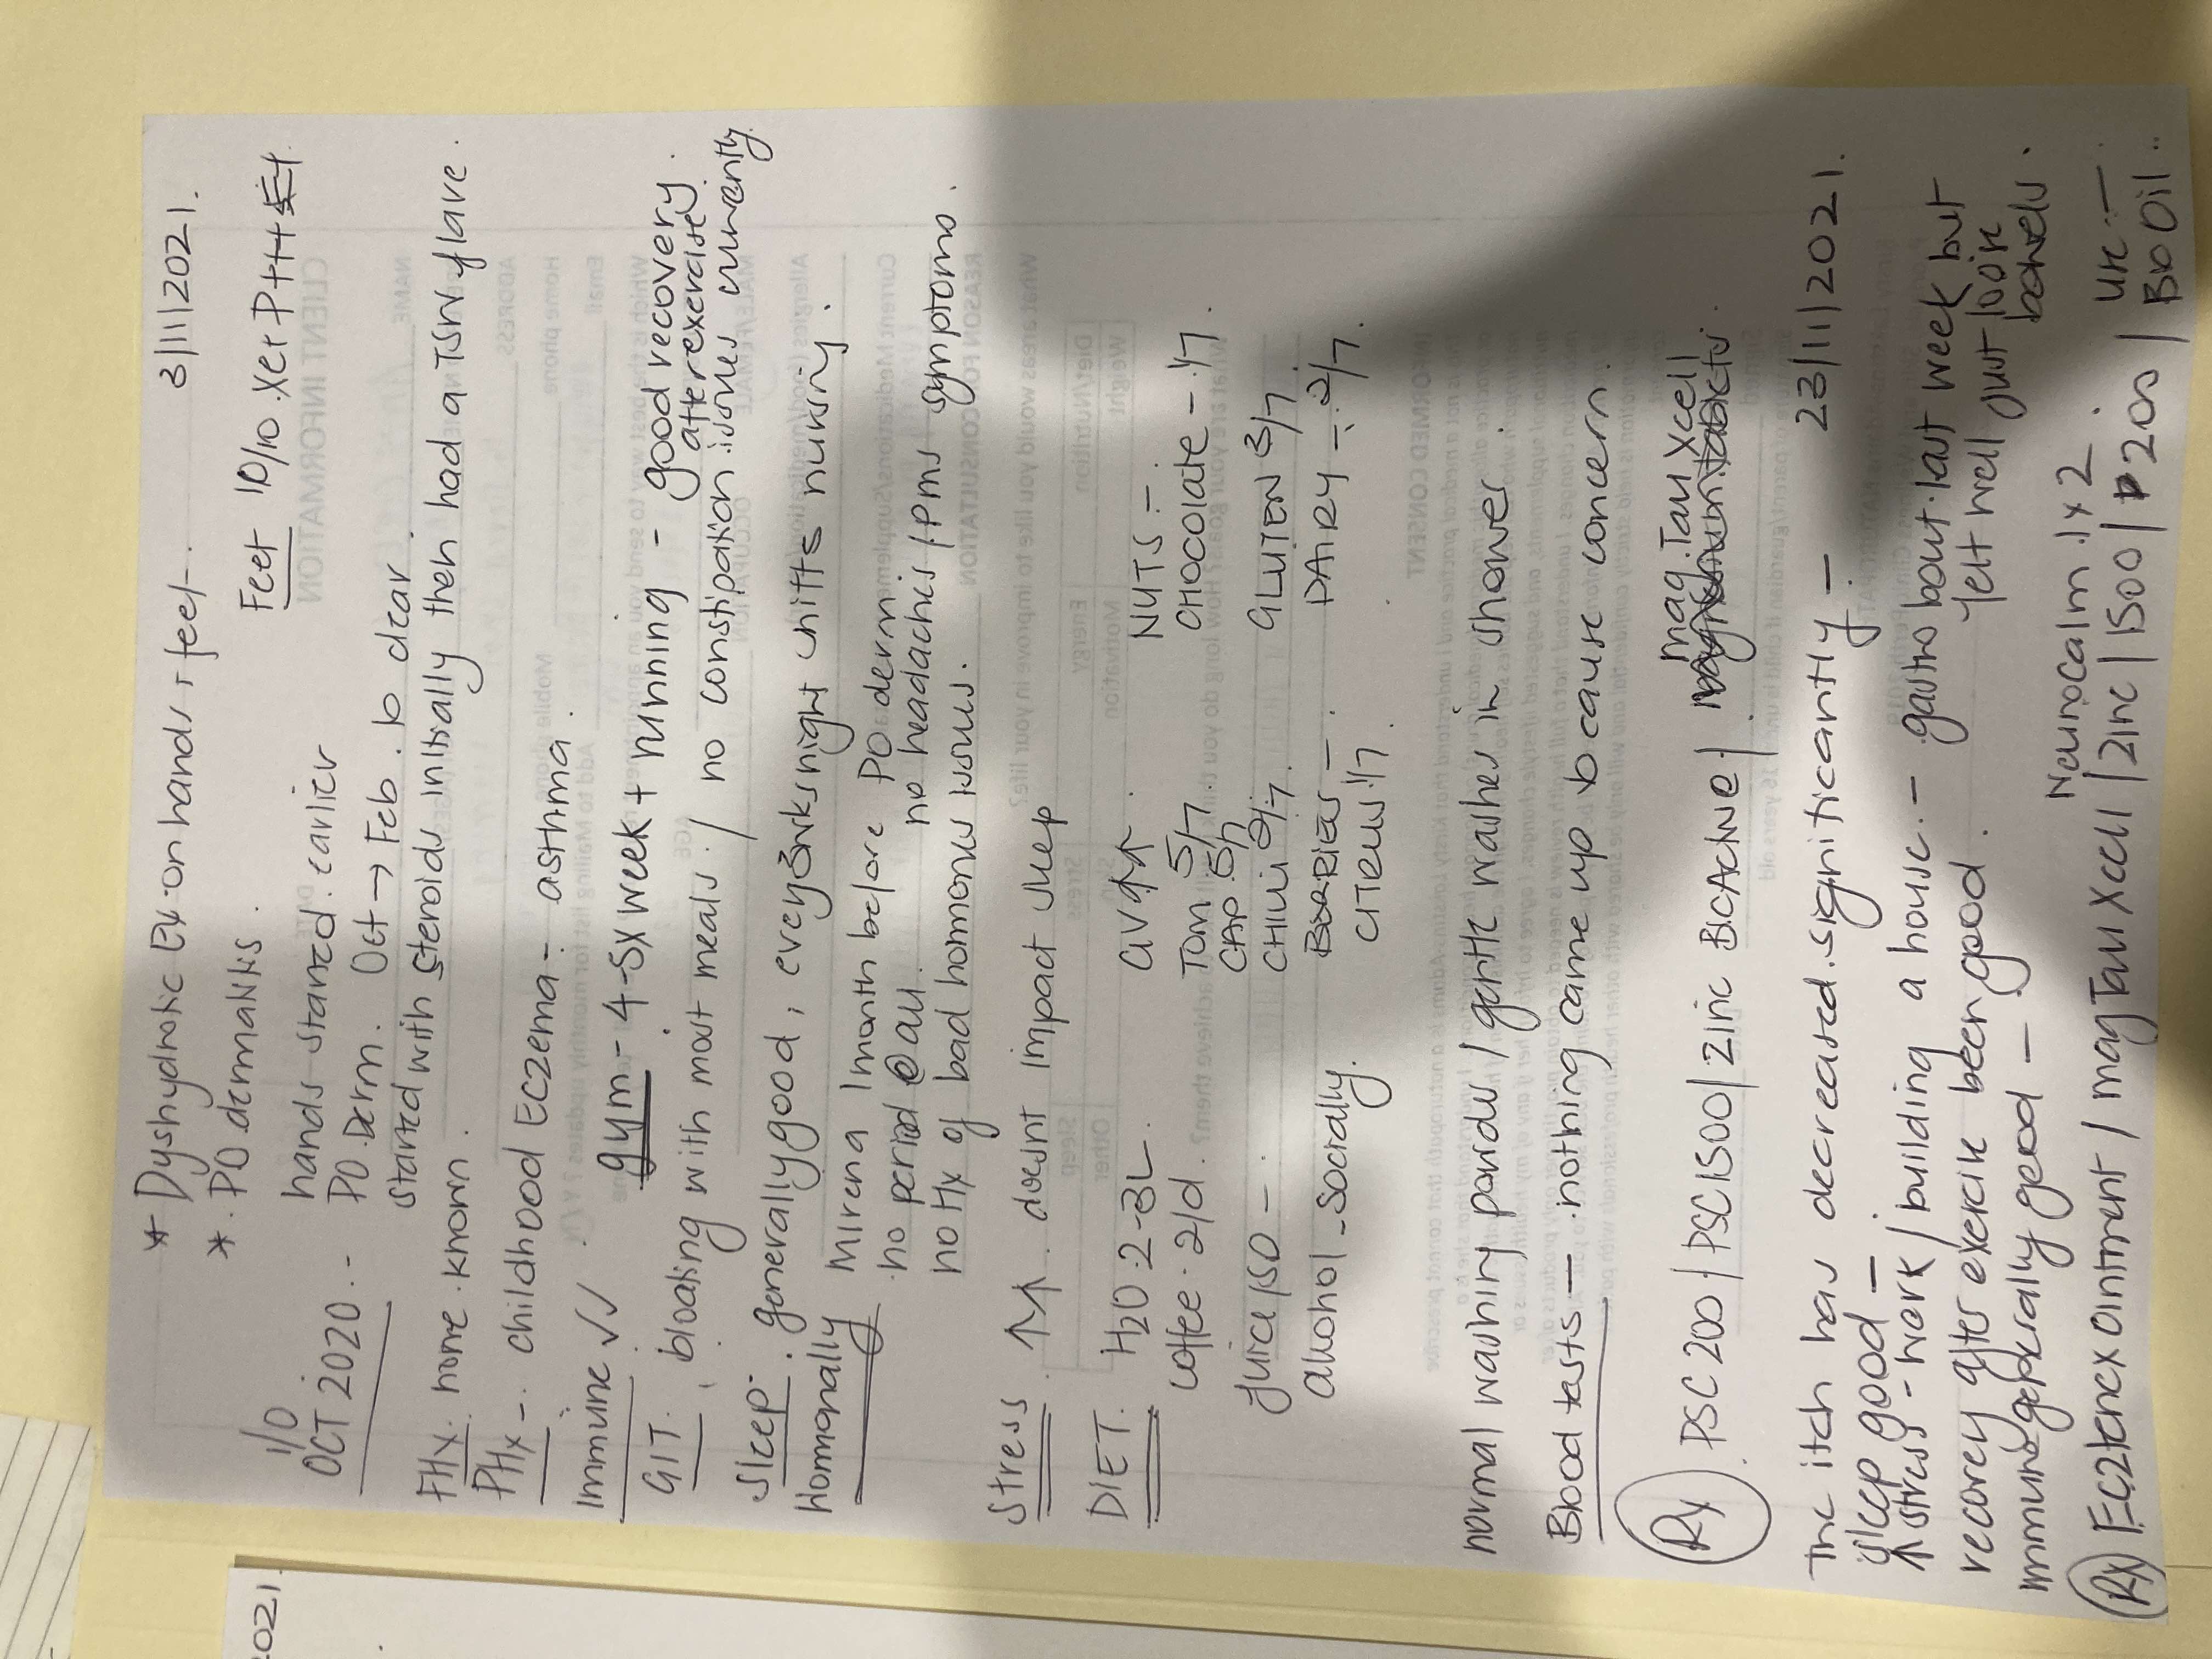 * Dyshydrotic Ex on hands + feet. 3/11/2021.
* PO dermatitis.
Feet 10/10 x e+ P++
I/O OCT 2020. -
hands started earlier
PO Derm. Oct → Feb. to clear
started with steroids initially then had a TSW flare.
FHx. none known.
PHx -. childhood Eczema - asthma.
Immune ✓✓.
gym - 4-5x week + running - good recovery after exercise.
GIT. bloating with most meals. / no constipation issues currently.
Sleep. generally good, every 3wks night shifts nursing.
Hormonally Mirena 1month before PO derm
no period @ all. no headaches / pms symptoms.
no Hx of bad hormones issues.
Stress ↑↑. doesnt impact sleep
DIET. H2O: 2-3L. avo ↑↑. NUTS -.
coffee. 2/d. Tom 5/7. CHOCOLATE - 1/7.
CAP 5/7
juice/SD -. CHILLI 2/7. GLUTEN 3/7
alcohol - socially. BERRIES -. DAIRY - 2/7.
CITRUS 1/7.
normal washing powder / gentle washes in shower.
Blood tests - nothing came up to cause concern.
Rx. PSC 200 / PSC 1500 / Zinc BICActive / mag. Tau Xcell
The itch has decreased significantly - 23/11/2021.
sleep good -.
↑ stress - work / building a house. - gastro bout last week but
recovery after exercise been good. felt well gut / ok in bowels.
immune generally good -.
Neurocalm 1x2
Rx Eczterex Ointment / mag Tau Xcell / Zinc / 1500 / 200 / Bio Oil..